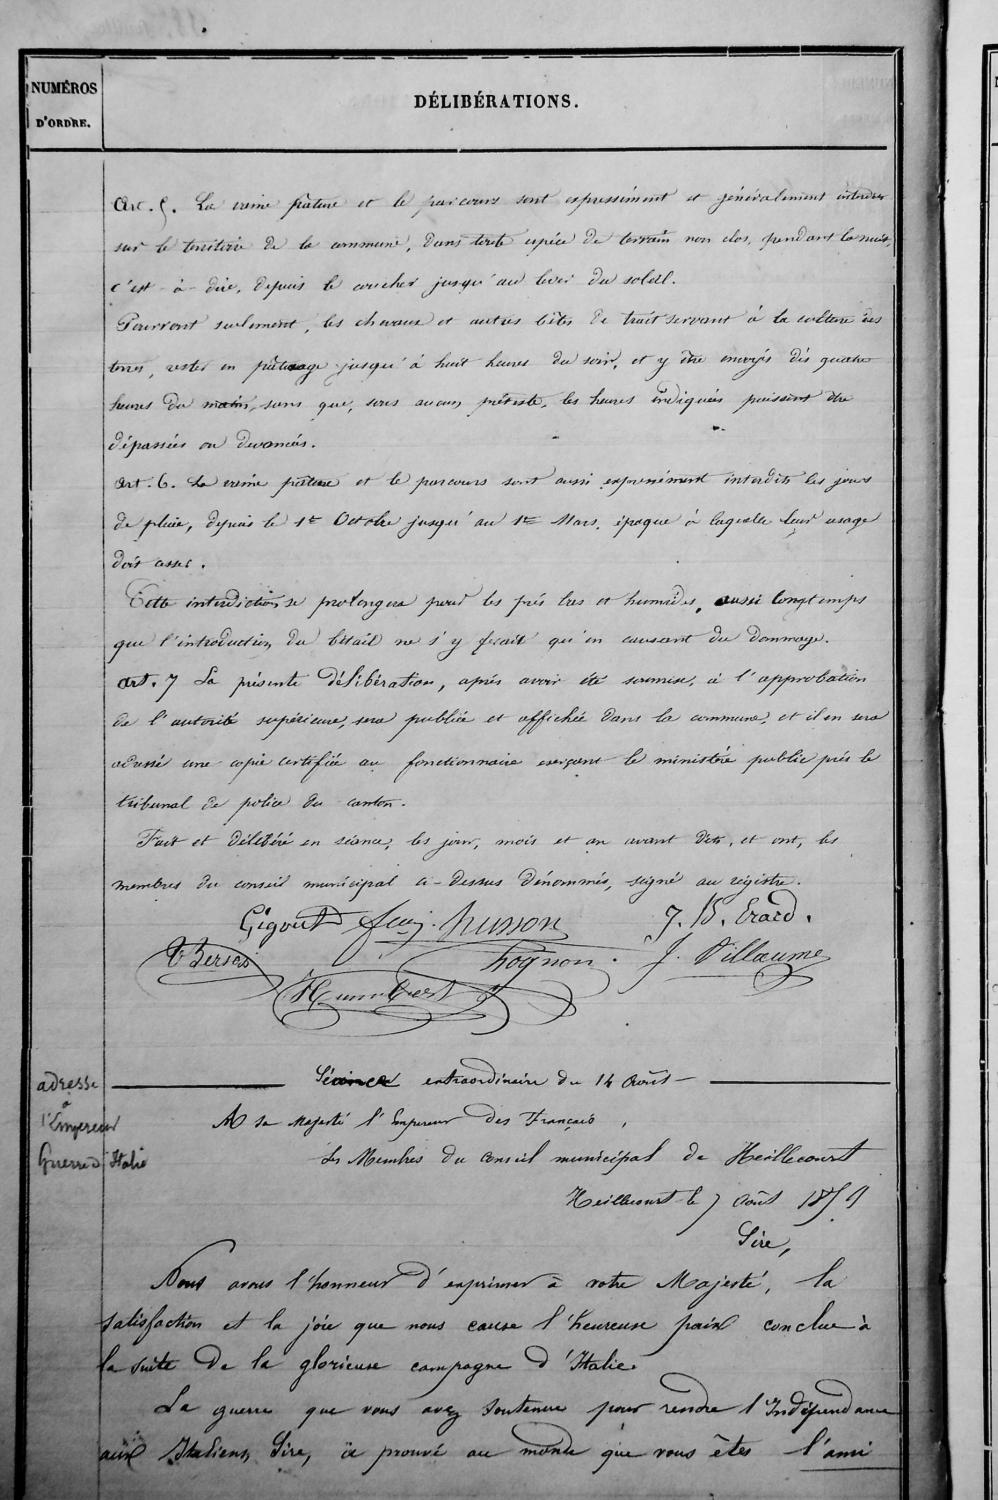 NUMÉROS
D'ORDRE.
DÉLIBÉRATIONS.
Art. 5. La vaine pâture et le parcours sont expressément et généralement interdits
sur le territoire de la commune, dans toute espéce de terrain non clos, pendant la nuit,
c'est-à-dire, depuis le coucher jusqu'au lever du soleil.
Pourront seulement, les chevaux et autres bêtes de trait servant à la culture des
terres, rester en pâturage jusqu'à huit heures du soir, et y être envoyés dès quatre
heures du matin, sans que, sous aucun prétexte, les heures indiquées puissent être
dépassées ou devancées.
Art. 6. La vaine pâture et le parcours sont aussi expressément interdits les jours
de pluie, depuis le 1er Octobre jusqu'au 1er Mars, époque à laquelle leur usage
doit cesser.
Cette interdiction se prolongera pour les prés bas et humides, aussi longtemps
que l'introduction du bétail ne s'y ferait qu'en causant du dommage.
Art. 7 La présente délibération, après avoir été soumise, à l'approbation
de l'autorité supérieure, sera publiée et affichée dans la commune, et il en sera
adressé une copie certifiée au fonctionnaire exerçant le ministère public près le
tribunal de police du canton.
Fait et délibéré en séance, les jour, mois et an avant dits, et ont, les
membres du conseil municipal ci-dessus dénommés, signé au régistre.
Gigout husson J. B. Erard.
hognon. J. Villaume
Humbert
adresse
à
l'Empereur
Guerre d'Italie
Séance extraordinaire du 14 Août
A sa Majesté l'Empereur des Français,
Les Membres du Conseil municipal de Heillecourt
Heillecourt le 7 Août 1859
Sire,
Nous avons l'honneur d'exprimer à votre Majesté, la
satisfaction et la joie que nous cause l'heureuse paix conclue à
la suite de la glorieuse campagne d'Italie.
La guerre que vous avez soutenue pour rendre l'Indépendance
aux Italiens, Sire, a prouvé au monde que vous êtes l'ami